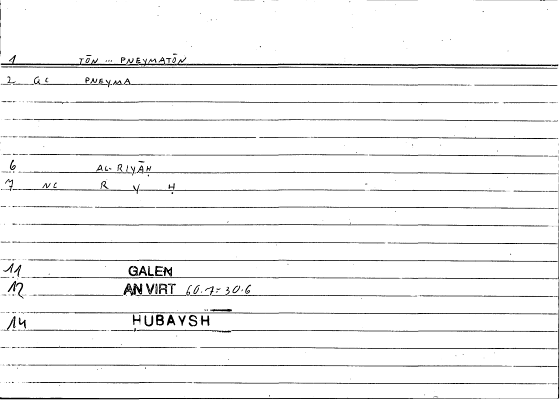 1 TŌN ... PNEYMATŌN
2 GL PNEYMA
6 AL-RIYĀḤ
7 NL R Y Ḥ
11 GALEN
12 AN VIRT 60.7=30.6
14 HUBAYSH